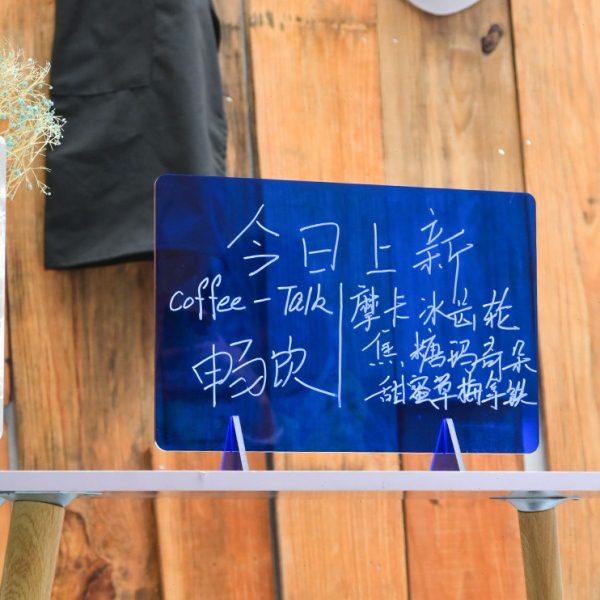 今日上新
coffee-Talk
畅饮
摩卡冰齿轮
焦糖玛奇朵
甜蜜草梅拿铁